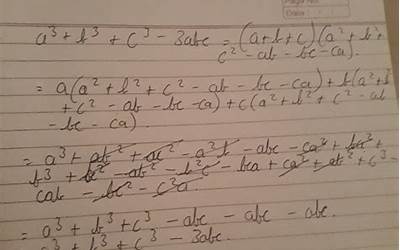 Page No.
Date
a³ + b³ + c³ - 3abc = (a+b+c)(a² + b² +
c² - ab - bc - ca).
= a(a² + b² + c² - ab - bc - ca) + b(a² + b²
+ c² - ab - bc - ca) + c(a² + b² + c² - ab
- bc - ca).
= a³ + ab² + ac² - a²b - abc - ca² + ba² +
b³ + bc² - ab² - b²c - bca + ca² + cb² + c³ -
cab - bc² - c²a.
= a³ + b³ + c³ - abc - abc - abc.
= a³ + b³ + c³ - 3abc.